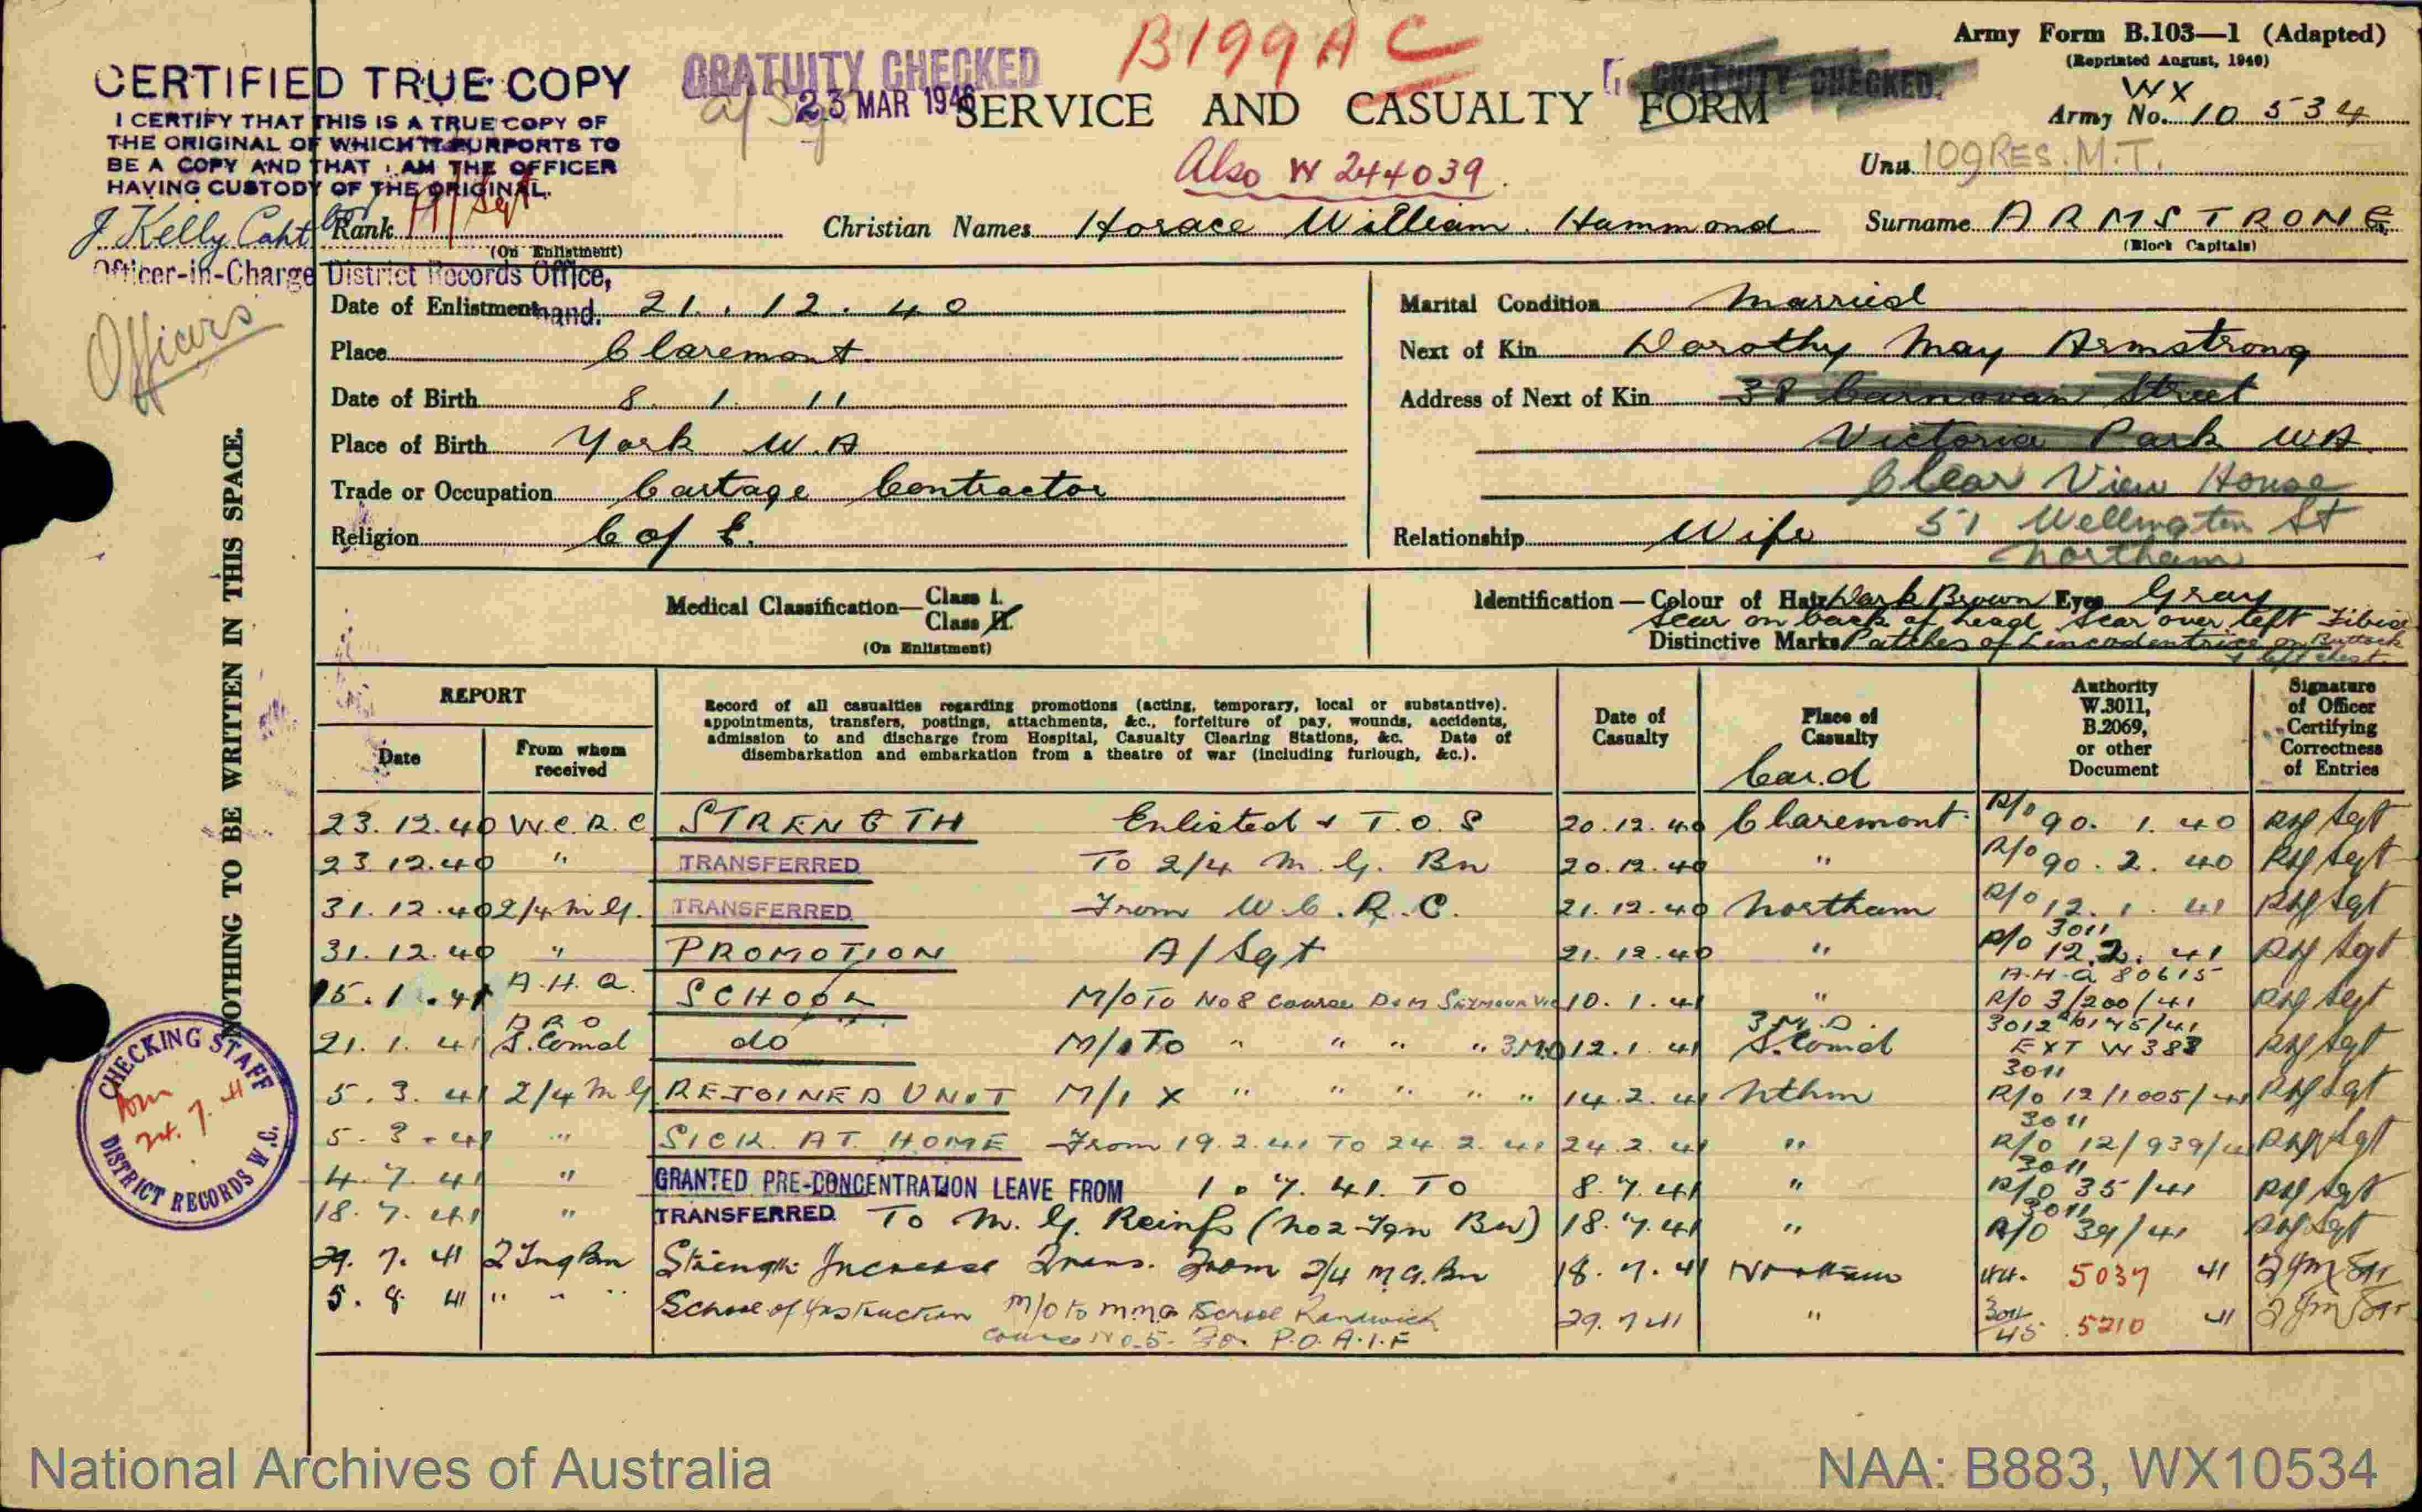 CERTIFIED TRUE COPY
I CERTIFY THAT THIS IS A TRUE COPY OF
THE ORIGINAL OF WHICH IT PURPORTS TO
BE A COPY AND THAT I AM THE OFFICER
HAVING CUSTODY OF THE ORIGINAL.
J Kelly Capt
Officer-in-Charge District Records Office,
Officers
GRATUITY CHECKED
23 MAR 1946
B199A C
GRATUITY CHECKED.
Army Form B.103—1 (Adapted)
(Reprinted August, 1940)
SERVICE AND CASUALTY FORM
WX
Army No. 10534
Also W 244039.
Unit 109 RES. M.T.
Rank A/Sgt
(On Enlistment)
Christian Names Horace William Hammond
Surname ARMSTRONG
(Block Capitals)
Date of Enlistment 21.12.40
Place Claremont
Date of Birth 8.1.11
Place of Birth York W.A
Trade or Occupation Cartage Contractor
Religion C of E.
Marital Condition Married
Next of Kin Dorothy May Armstrong
Address of Next of Kin 38 Carnovan Street
Victoria Park WA
Clear View House
51 Wellington St
Northam
Relationship Wife
Medical Classification— Class I.
Class II.
(On Enlistment)
Identification — Colour of Hair Dark Brown Eyes Gray
Scar on back of head Scar over left Tibia
Distinctive Marks Patches of on Buttock
& left chest.
NOTHING TO BE WRITTEN IN THIS SPACE.
REPORT
Date
From whom received
Record of all casualties regarding promotions (acting, temporary, local or substantive).
appointments, transfers, postings, attachments, &c., forfeiture of pay, wounds, accidents,
admission to and discharge from Hospital, Casualty Clearing Stations, &c. Date of
disembarkation and embarkation from a theatre of war (including furlough, &c.).
Date of Casualty
Place of Casualty
Authority W.3011, B.2069, or other Document
Signature of Officer Certifying Correctness of Entries
23.12.40 W.C.R.C STRENGTH Enlisted & T.O.S 20.12.40 Claremont R/O 90.1.40 Sgt
23.12.40 " TRANSFERRED To 2/4 M.G. Bn 20.12.40 " R/O 90.2.40 Sgt
31.12.40 2/4 M.G. TRANSFERRED From W.C.R.C. 21.12.40 Northam R/O 12.1.41 Sgt
31.12.40 " PROMOTION A/Sgt 21.12.40 " 3011 R/O 12.2.41 Sgt
15.1.41 A.H.Q. SCHOOL M/O To No 8 Course Seymour Vic 10.1.41 " A.H.Q 80615 R/O 3/200/41 Sgt
21.1.41 DRO S.Comd do M/I To " " " " 3MD 12.1.41 3.M.D. S.Comd EXT W 383 Sgt
5.3.41 2/4 MG REJOINED UNIT M/I X " " " " " 14.2.41 Nthm 3011 R/O 12/1005/41 Sgt
5.3.41 " SICK AT HOME From 19.2.41 To 24.2.41 24.2.41 " 3011 R/O 12/939/41 Sgt
4.7.41 " GRANTED PRE-CONCENTRATION LEAVE FROM 1.7.41. TO 8.7.41 " 3011 R/O 35/41 Sgt
18.7.41 " TRANSFERRED To M.G. Reinfs (No 2 Tgn Bn) 18.7.41 " 3011 R/O 39/41 Sgt
29.7.41 Strength Increase Trans. From 2/4 M.G.Bn 18.7.41 Northam 44. 5037 41
5.8.41 " " " School of Instruction M/O to M.M.G School Randwick 29.7.41 " 3011 45 .5210 41
Course No.5. For P.O. A.I.F
CHECKING STAFF
DISTRICT RECORDS W.C.
National Archives of Australia
NAA: B883, WX10534